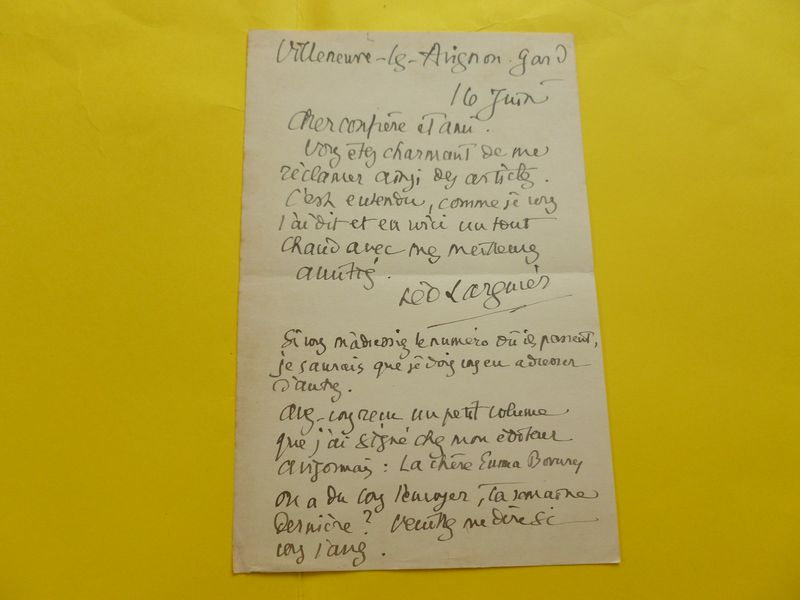 Villeneuve-lès-Avignon. Gard
16 Juin
Cher confrère et ami.
Vous êtes charmant de me
réclamer ainsi des articles.
C'est entendu, comme je vous
l'ai dit et en voici un tout
chaud avec mes meilleures
amitiés.
Léo Larguier
Si vous m'adressiez le numéro où ils passent,
je saurais que je dois vous en adresser
d'autres.
Avez-vous reçu un petit volume
que j'ai signé chez mon éditeur
avignonnais : La chère Emma Bovary
on a du vous l'envoyer, la semaine
dernière ? Veuillez me dire si
vous l'avez.